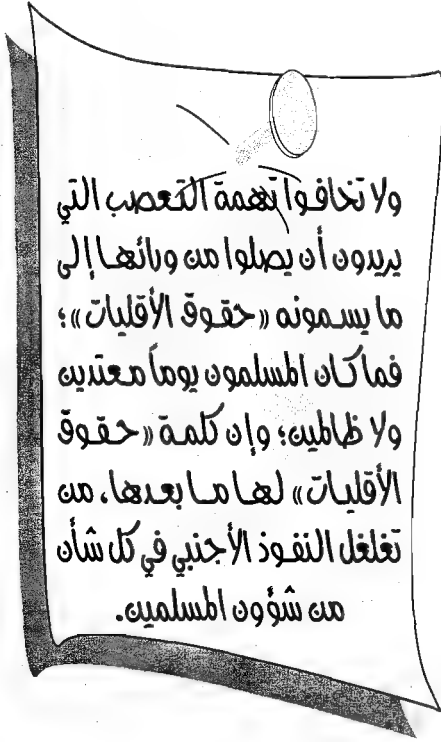 ولا تخافوا تهمة التعصب التي
يريدون أن يصلوا من ورائها إلى
ما يسمونه «حقوق الأقليات»؛
فما كان المسلمون يوماً معتدين
ولا ظالمين؛ وإن كلمة «حقوق
الأقليات» لها ما بعدها، من
تغلغل النفوذ الأجنبي في كل شأن
من شؤون المسلمين.